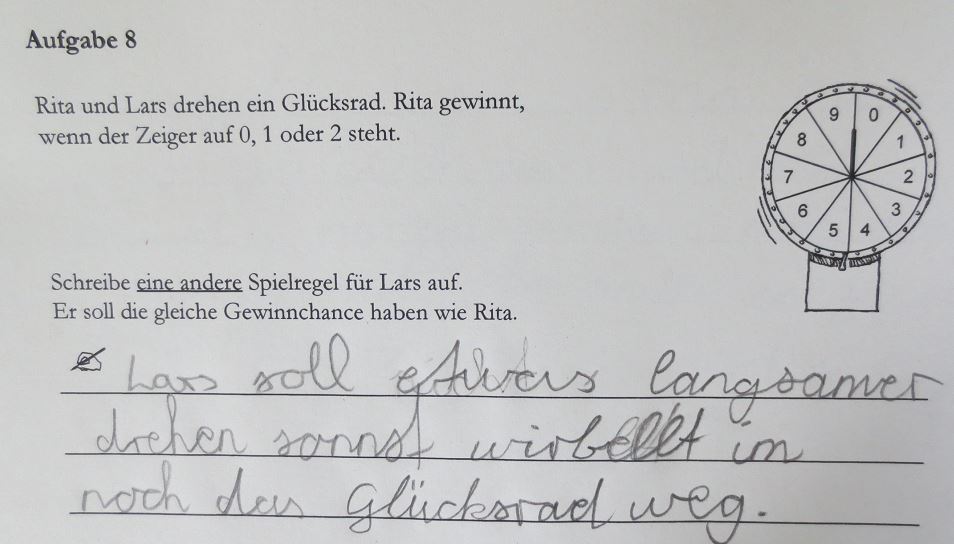 Aufgabe 8
Rita und Lars drehen ein Glücksrad. Rita gewinnt,
wenn der Zeiger auf 0, 1 oder 2 steht.
9 0
8 1
7 2
6 3
5 4
Schreibe eine andere Spielregel für Lars auf.
Er soll die gleiche Gewinnchance haben wie Rita.
Lars soll etwas langsamer
drehen sonnst wirbellt im
noch das Glücksrad weg.